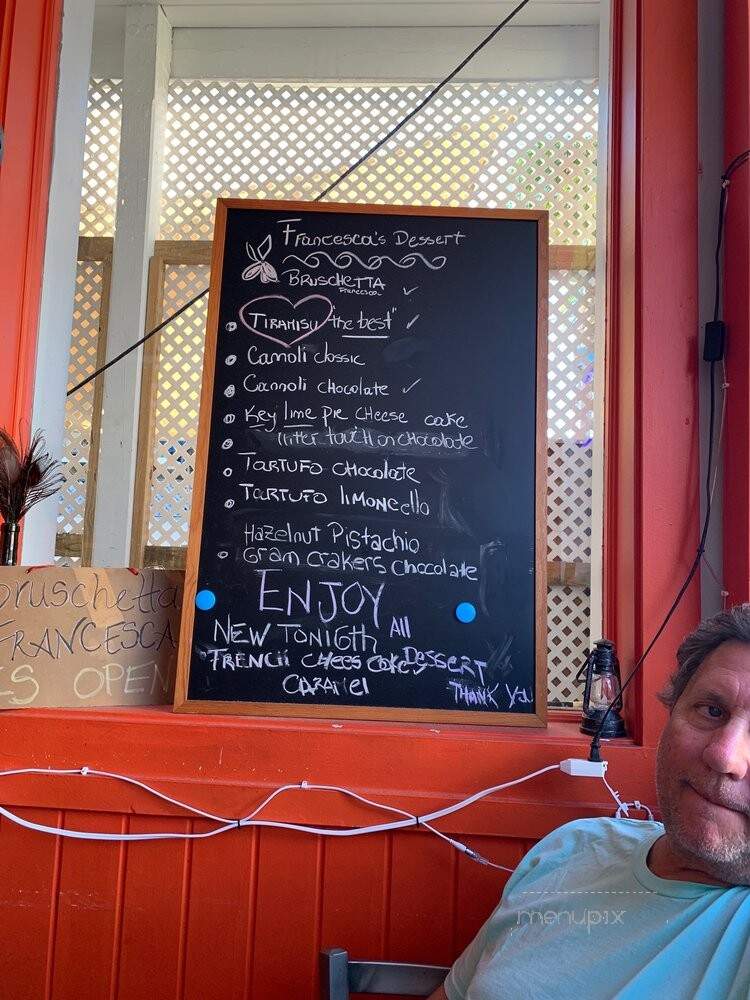 Francesca's Dessert
BRUSCHETTA
FRANCESCA
TIRAMISU "the best"
Cannoli classic
Cannoli chocolate
Key lime pie cheese cake
inter touch on chocolate
TARTUFO CHOCOLATE
TARTUFO limoncello
Hazelnut Pistachio
Gram crakers chocolate
ENJOY
NEW TONIGTH All
FRENCH CHEES CAKE DESSERT
CARAMEL THANK YOU
bruschetta
FRANCESCA
IS OPEN
menupix